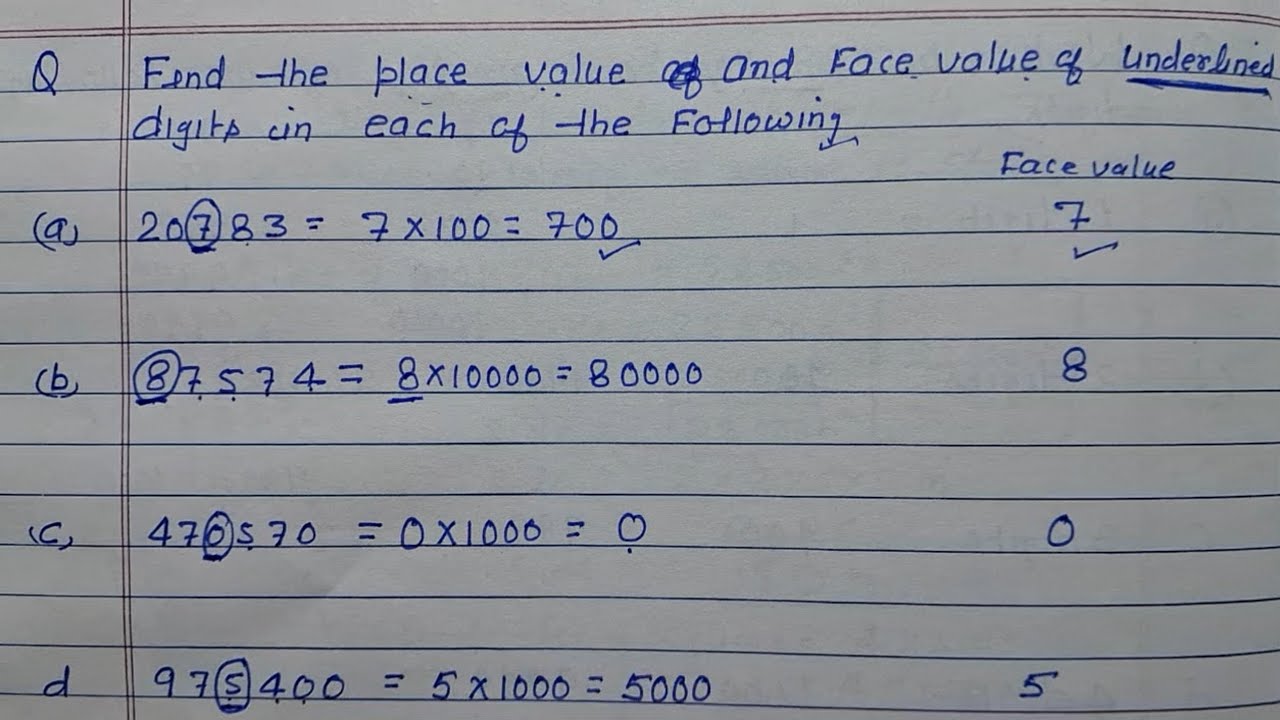 Q Find the place value of and Face value of underlined
digits in each of the Following
Face value
(a) 20783 = 7×100 = 700 7
(b) 87574 = 8×10000 = 80000 8
(c) 470570 = 0×1000 = 0 0
d 975400 = 5×1000 = 5000 5